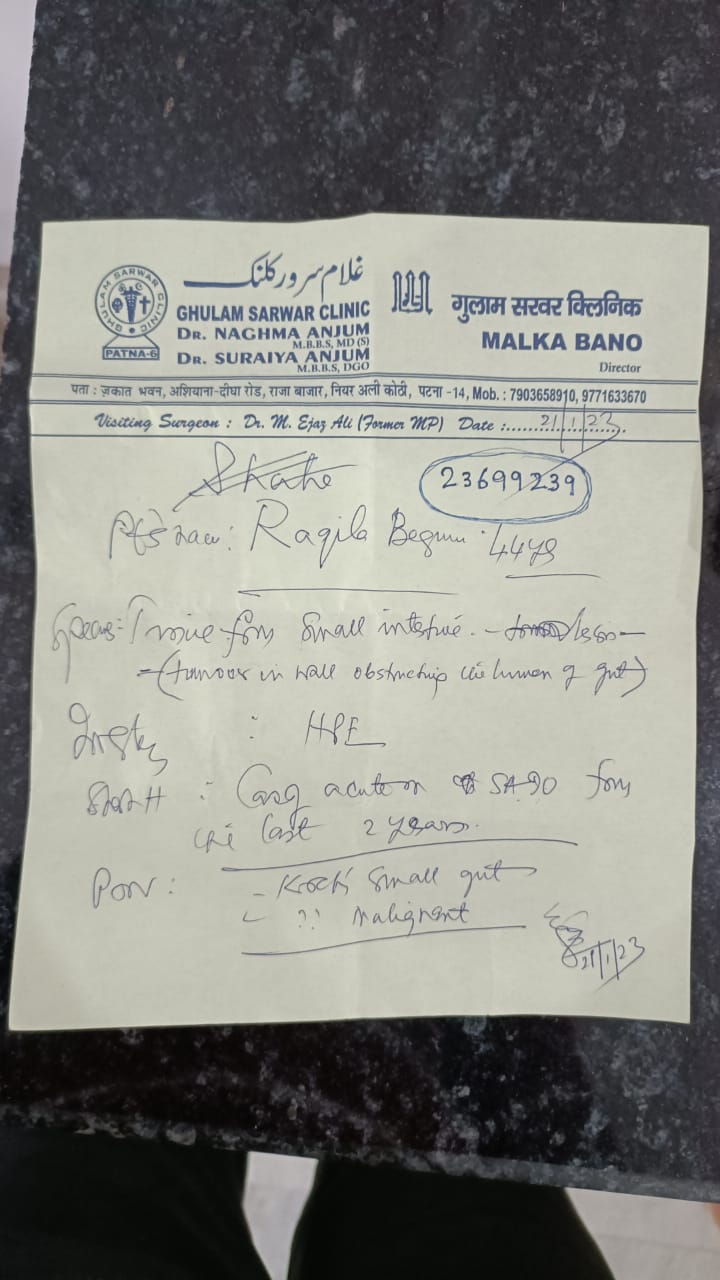 غلام سرور کلنک
GHULAM SARWAR CLINIC
DR. NAGHMA ANJUM
M.B.B.S, MD (S)
DR. SURAIYA ANJUM
M.B.B.S, DGO
GHULAM SARWAR CLINIC
PATNA-6
गुलाम सरवर क्लिनिक
MALKA BANO
Director
पता : ज़कात भवन, अशियाना-दीघा रोड, राजा बाजार, नियर अली कोठी, पटना -14, Mob. : 7903658910, 9771633670
Visiting Surgeon : Dr. M. Ejaz Ali (Former MP) Date :......21/1/23.
23699239
Raqila Begum 44
from Small intestine.
(tumour in wall obstructing the lumen of gut)
: HPE
: Case acute on SAIO from
the last 2 years.
- Koch's Small gut
- ?? Malignant
21/1/23